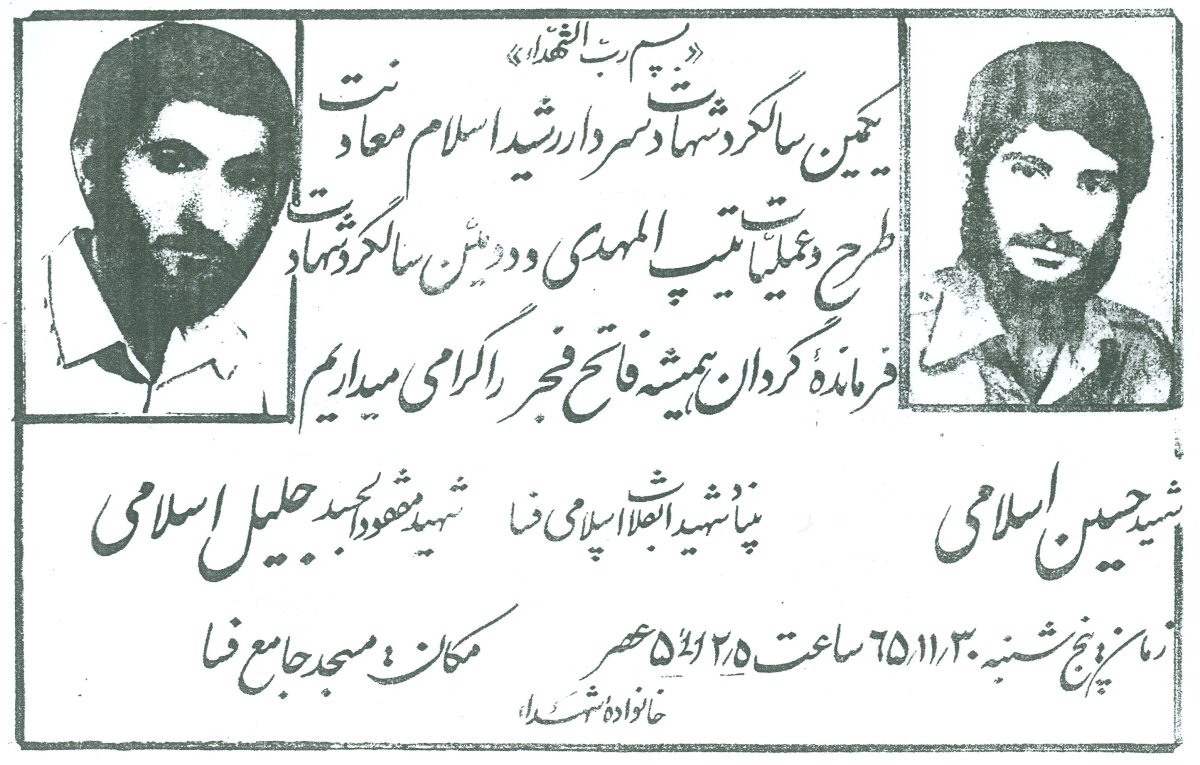 «بسم ربّ الشهداء»
یکمین سالگرد شهادت سردار رشید اسلام معاونت
طرح و عملیّات تیپ المهدی و دومیّن سالگرد شهادت
فرماندهٔ گردان همیشه فاتح فجر را گرامی میداریم
شهید حسین اسلامی
بنیاد شهید انقلاب اسلامی فسا
شهید مفقود الجسد جلیل اسلامی
زمان: پنج شنبه ۶۵٫۱۱٫۳۰ ساعت ۲٫۵ تا ۵ عصر
مکان: مسجد جامع فسا
خانوادهٔ شهداء